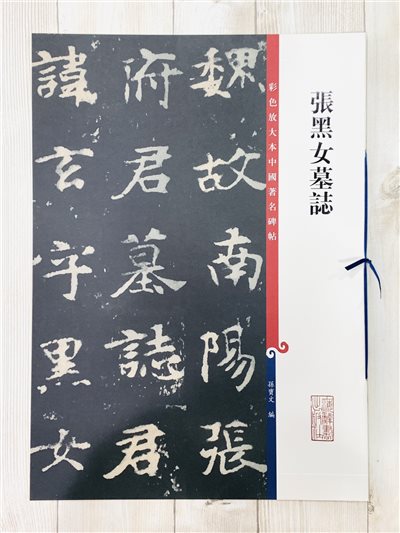 張黑女墓誌
彩色放大本中國著名碑帖
孫寶文 編
魏故南陽張
府君墓誌君
諱玄字黑女